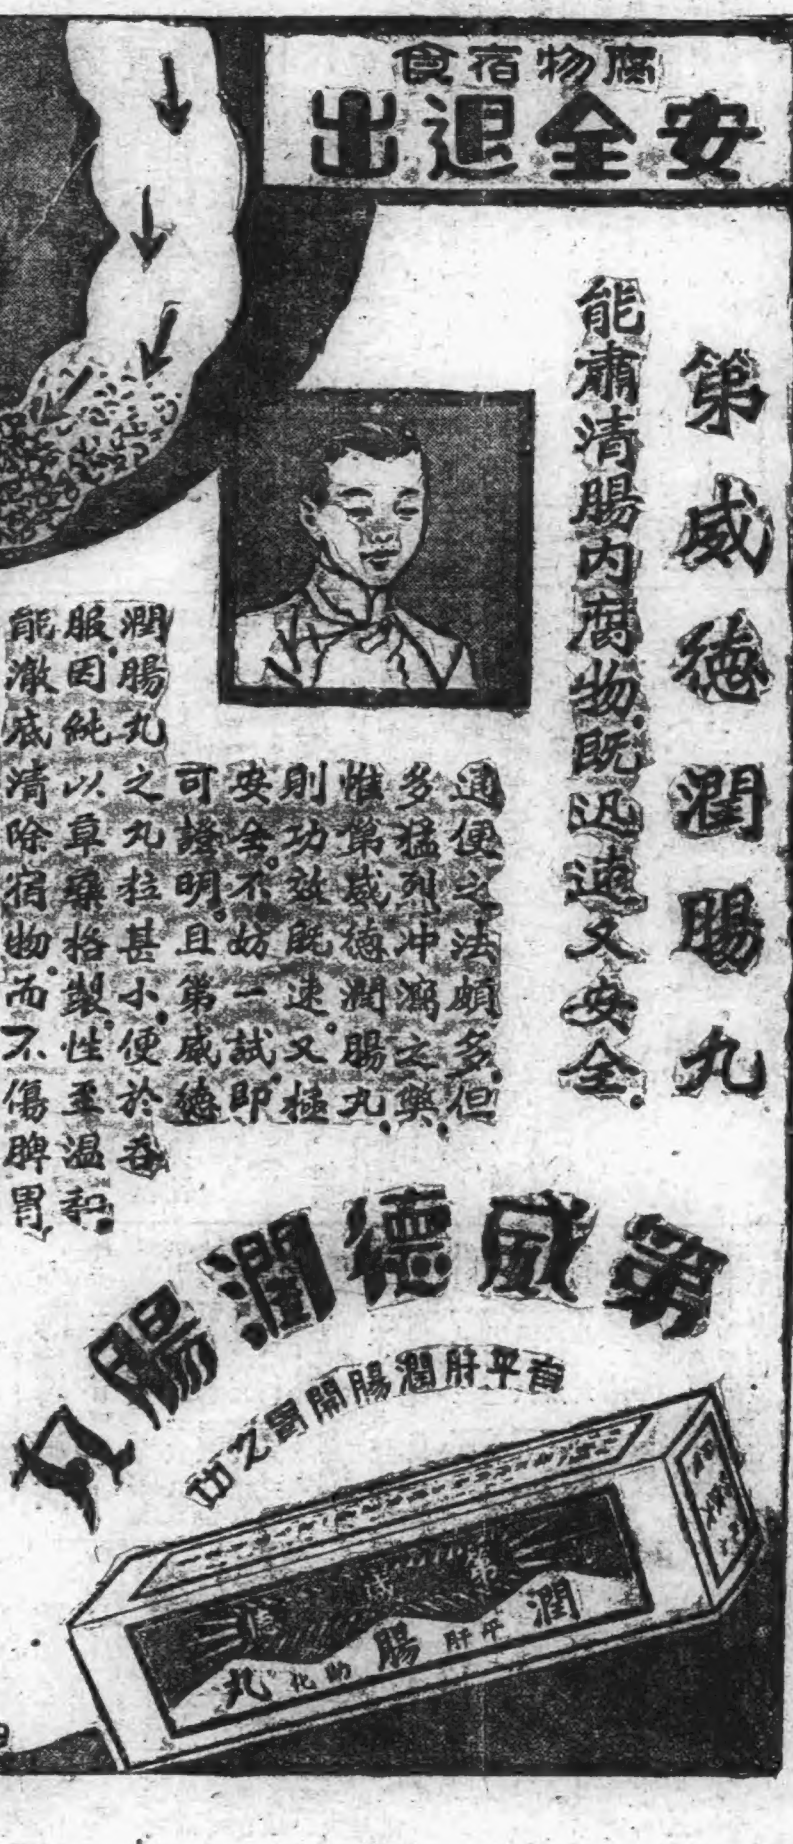 腐物宿食
安全退出
第威德潤腸丸
能肅清腸内腐物既迅速又安全.
通便之法頗多.但
多猛烈冲瀉之藥.
惟第威德潤腸丸.
則功效既速.又極
安全.不妨一試.即
可證明.且第威德
潤腸丸之丸粒甚小.便於吞
服.因純以草藥格製.性至温和.
能澈底清除宿物.而不傷脾胃.
第威德潤腸丸
有平肝潤腸開胃之功
第威德
潤平肝腸助化丸